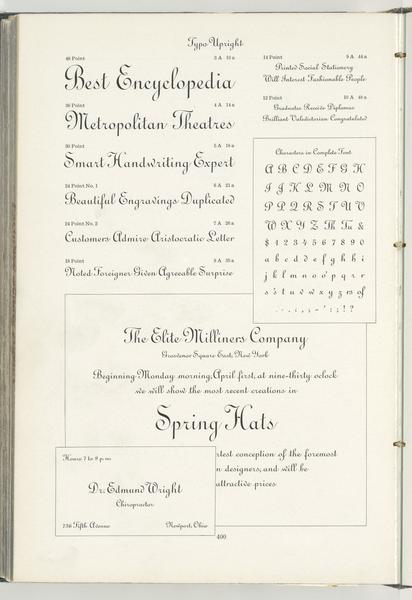 Typo Upright
48 Point 3 A 10 a
Best Encyclopedia
36 Point 4 A 14 a
Metropolitan Theatres
30 Point 5 A 18 a
Smart Handwriting Expert
24 Point No. 1 6 A 23 a
Beautiful Engravings Duplicated
24 Point No. 2 7 A 26 a
Customers Admire Aristocratic Letter
18 Point 9 A 35 a
Noted Foreigner Given Agreeable Surprise
14 Point 9 A 44 a
Printed Social Stationery
Will Interest Fashionable People
12 Point 10 A 48 a
Graduates Receive Diplomas
Brilliant Valedictorian Congratulated
Characters in Complete Font
A B C D E F G H
I J K L M N O
P Q R S T U V
W X Y Z Th Tu &
$ 1 2 3 4 5 6 7 8 9 0
a b c d e f g h i
j k l m n o p q r
s t u v w x y z rs of
. - , ; : ' ! ?
The Elite Milliners Company
Grosvenor Square East, New York
Beginning Monday morning, April first, at nine-thirty oclock
we will show the most recent creations in
Spring Hats
rtest conception of the foremost
n designers, and will be
attractive prices
Hours 7 to 9 p. m.
Dr. Edmund Wright
Chiropractor
736 Fifth Avenue Newport, Ohio
400